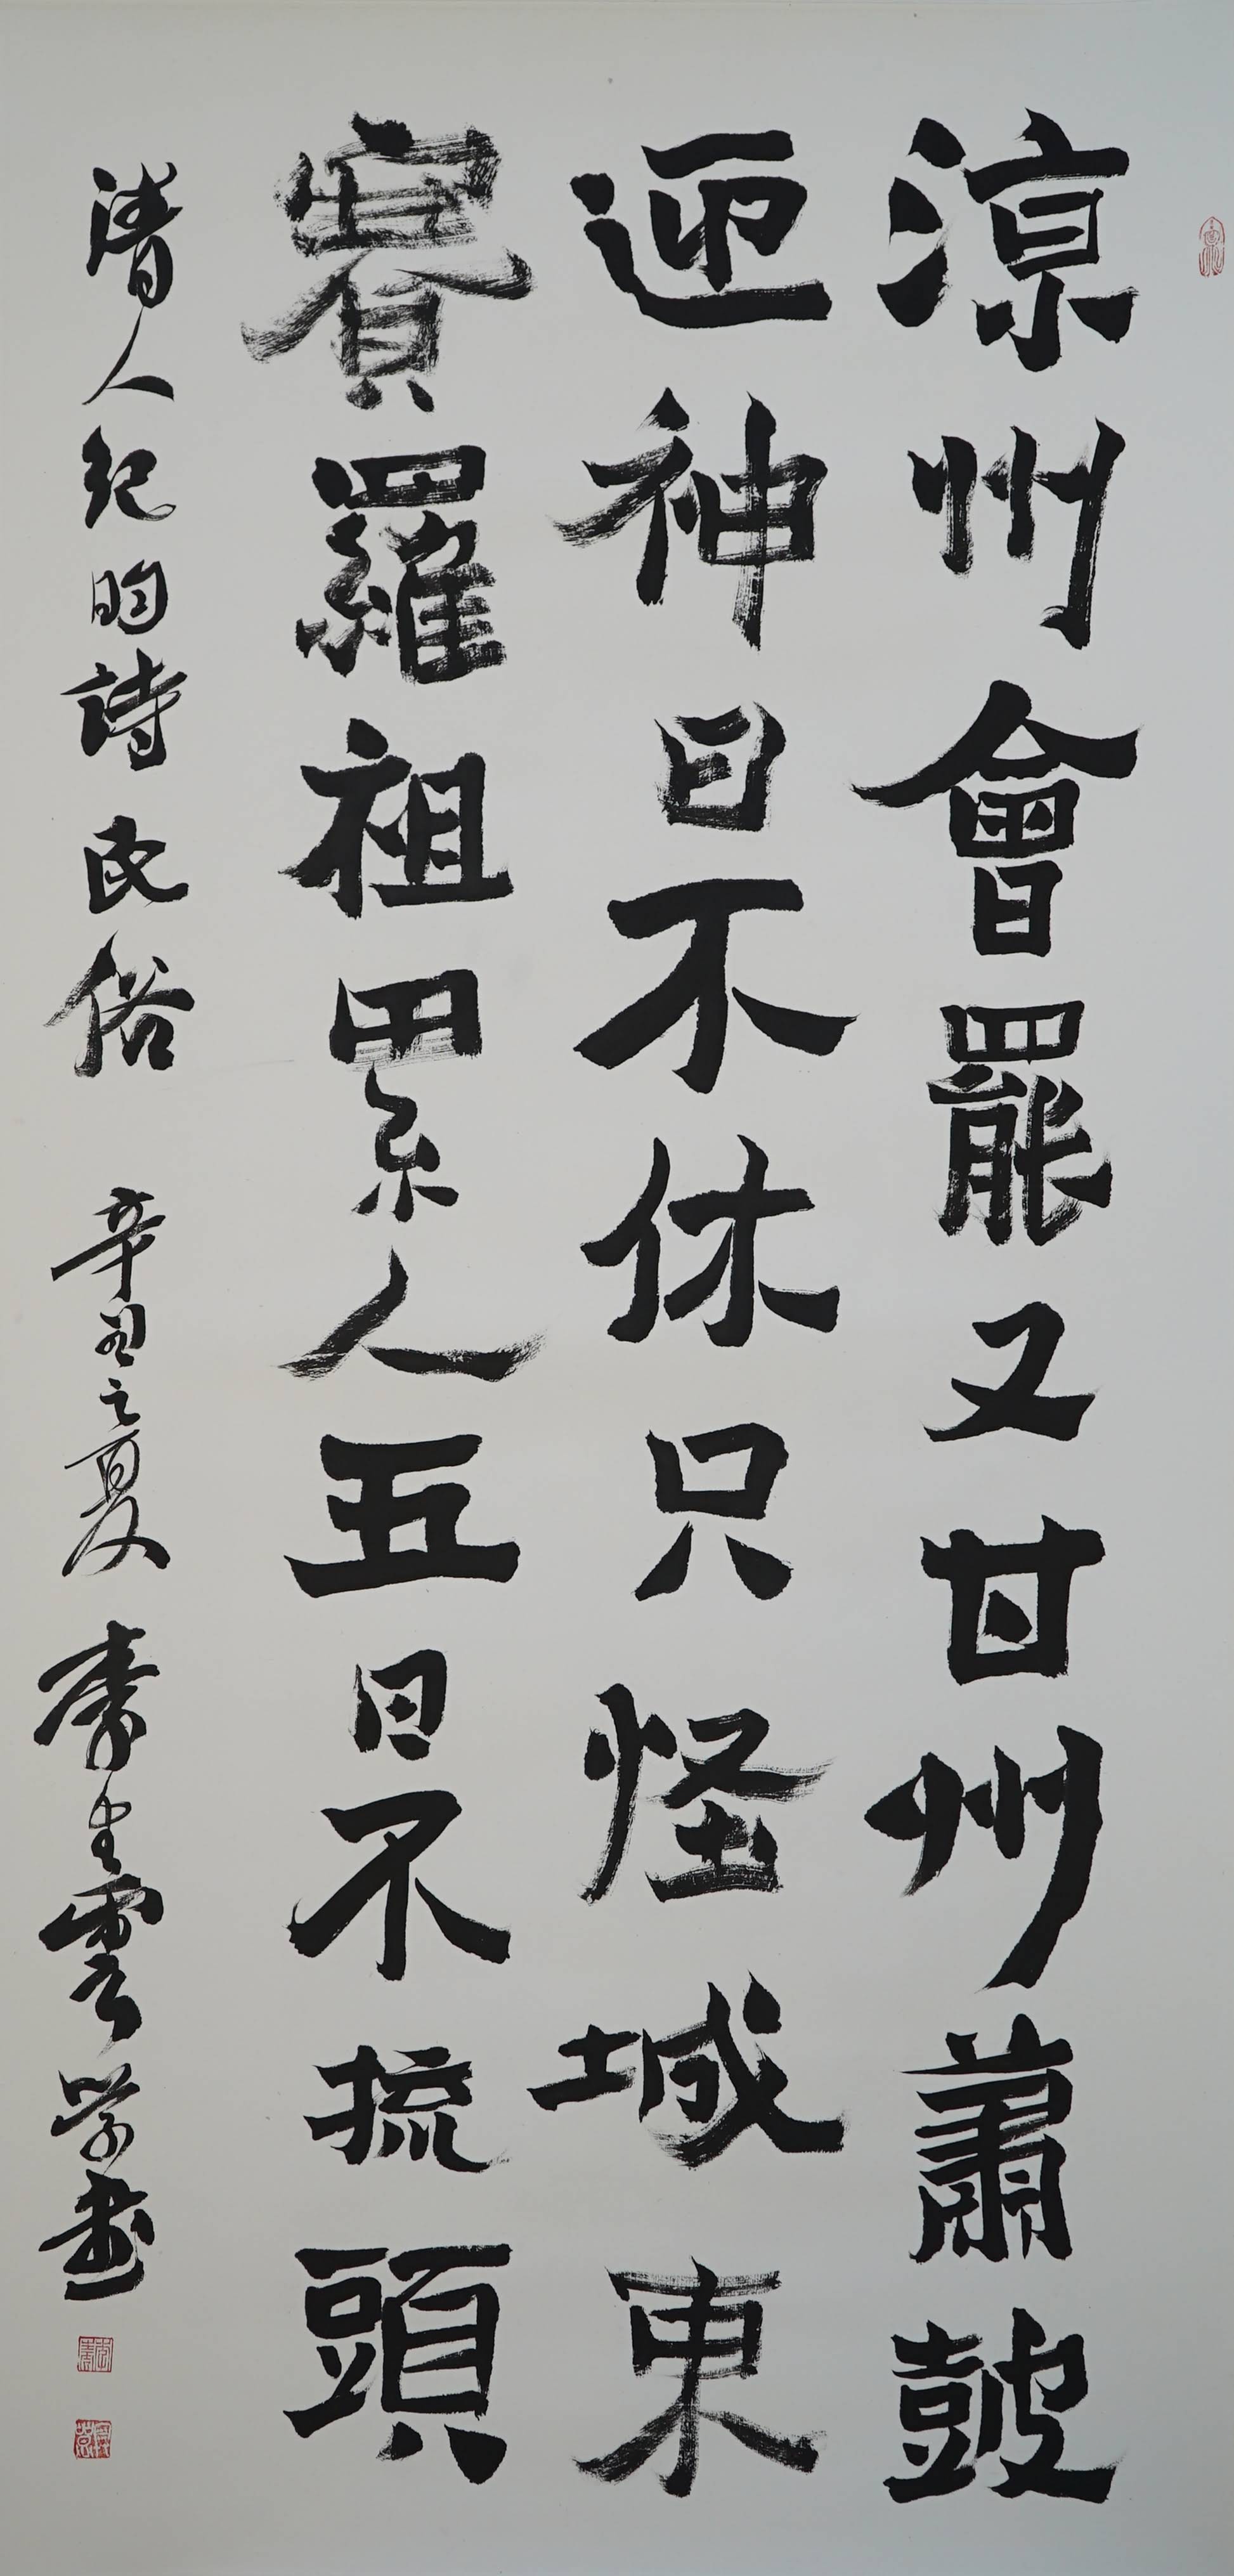 涼州會罷又甘州蕭鼓
迎神日不休只怪城東
賽羅祖累人五日不梳頭
清人紀昀詩民俗 辛丑之夏 李生雲学書